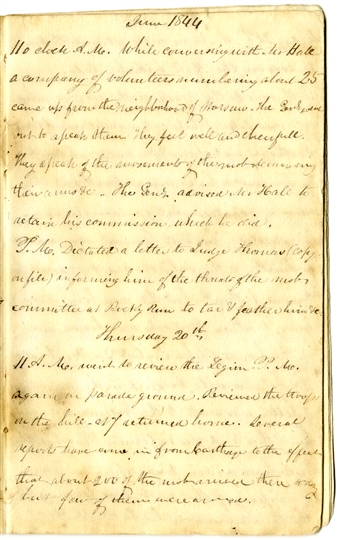 June 1844
11 o clock A.M. While conversing with Mr Hall
a company of volunteers numbering about 25
came up from the neighborhood of Warsaw. The Genl. went
out to speak them They feel well and cheerfull.
They speak of the movements of the mob demanding
their arms &c. The Genl. advised Mr Hall to
retain his commission which he did.
P.M. Dictated a letter to Judge Thomas (copy
on file) informing him of the threats of the mob
committee at Rocky Run to tar & feather him &c
Thursday 20th.
11. A.M. went to review the Legion P.M.
again on parade ground. Reviewed the troops
on the hill at 7 returned home. Several
reports have come in from Carthage to the effect
that about 200 of the mob arrived there
but few of them were armed.